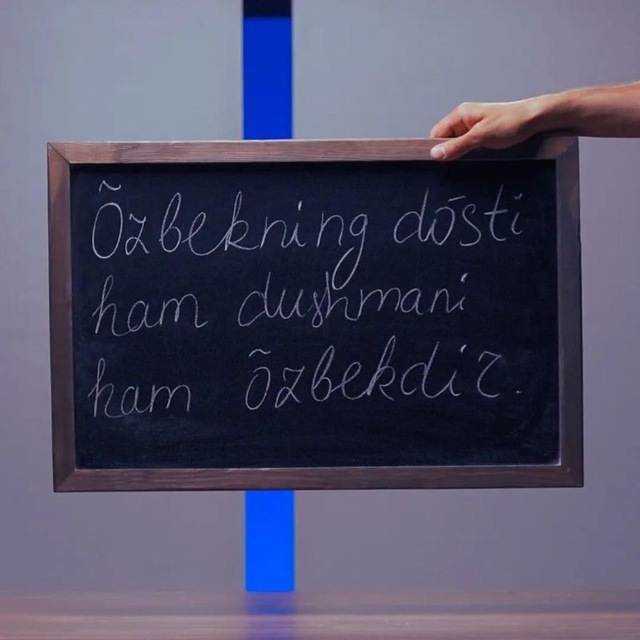 Õzbekning dõsti
ham dushmani
ham õzbekdir.